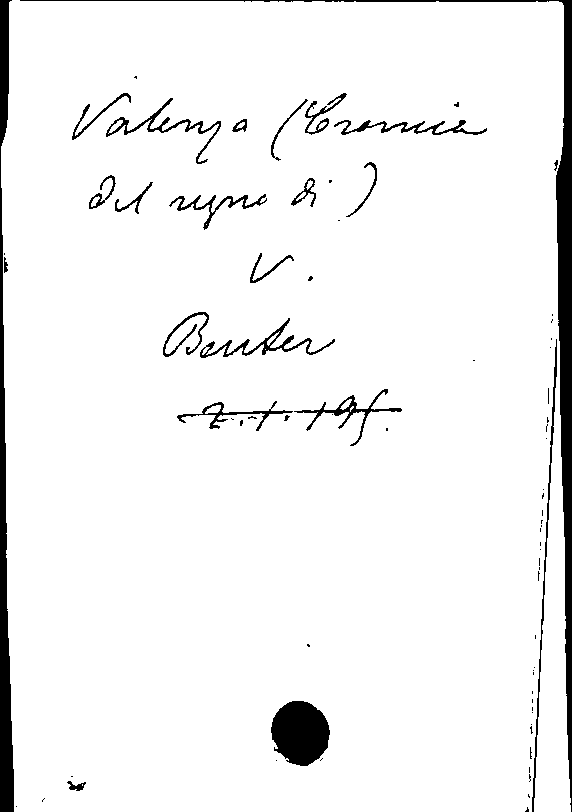 Valenza (Cronica
del regno di)
V.
Beuter
2.1.195.